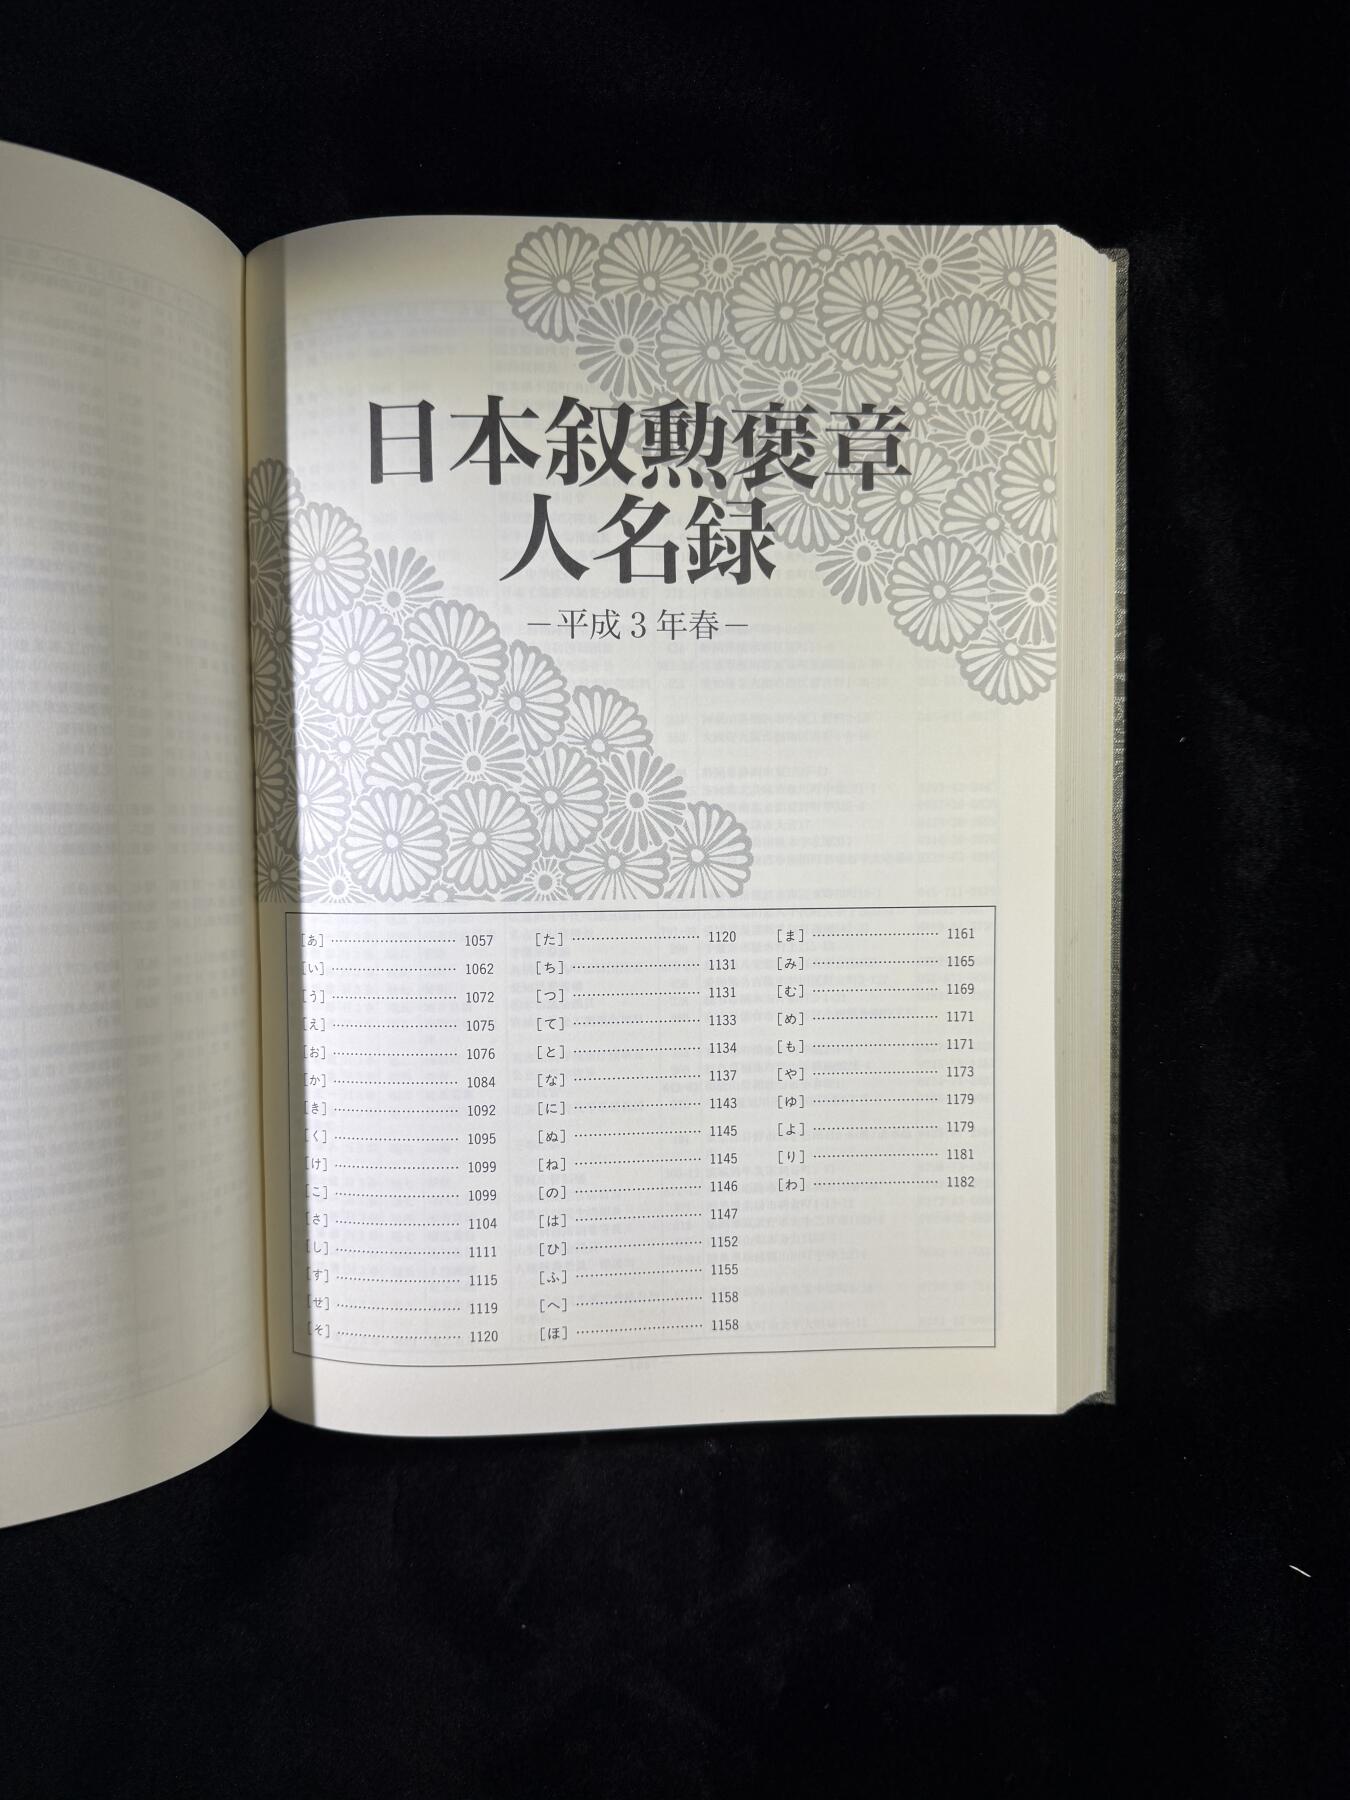 日本叙勲褒章
人名録
―平成3年春―
[あ]……………………1057
[い]……………………1062
[う]……………………1072
[え]……………………1075
[お]……………………1076
[か]……………………1084
[き]……………………1092
[く]……………………1095
[け]……………………1099
[こ]……………………1099
[さ]……………………1104
[し]……………………1111
[す]……………………1115
[せ]……………………1119
[そ]……………………1120
[た]……………………1120
[ち]……………………1131
[つ]……………………1131
[て]……………………1133
[と]……………………1134
[な]……………………1137
[に]……………………1143
[ぬ]……………………1145
[ね]……………………1145
[の]……………………1146
[は]……………………1147
[ひ]……………………1152
[ふ]……………………1155
[へ]……………………1158
[ほ]……………………1158
[ま]……………………1161
[み]……………………1165
[む]……………………1169
[め]……………………1171
[も]……………………1171
[や]……………………1173
[ゆ]……………………1179
[よ]……………………1179
[り]……………………1181
[わ]……………………1182